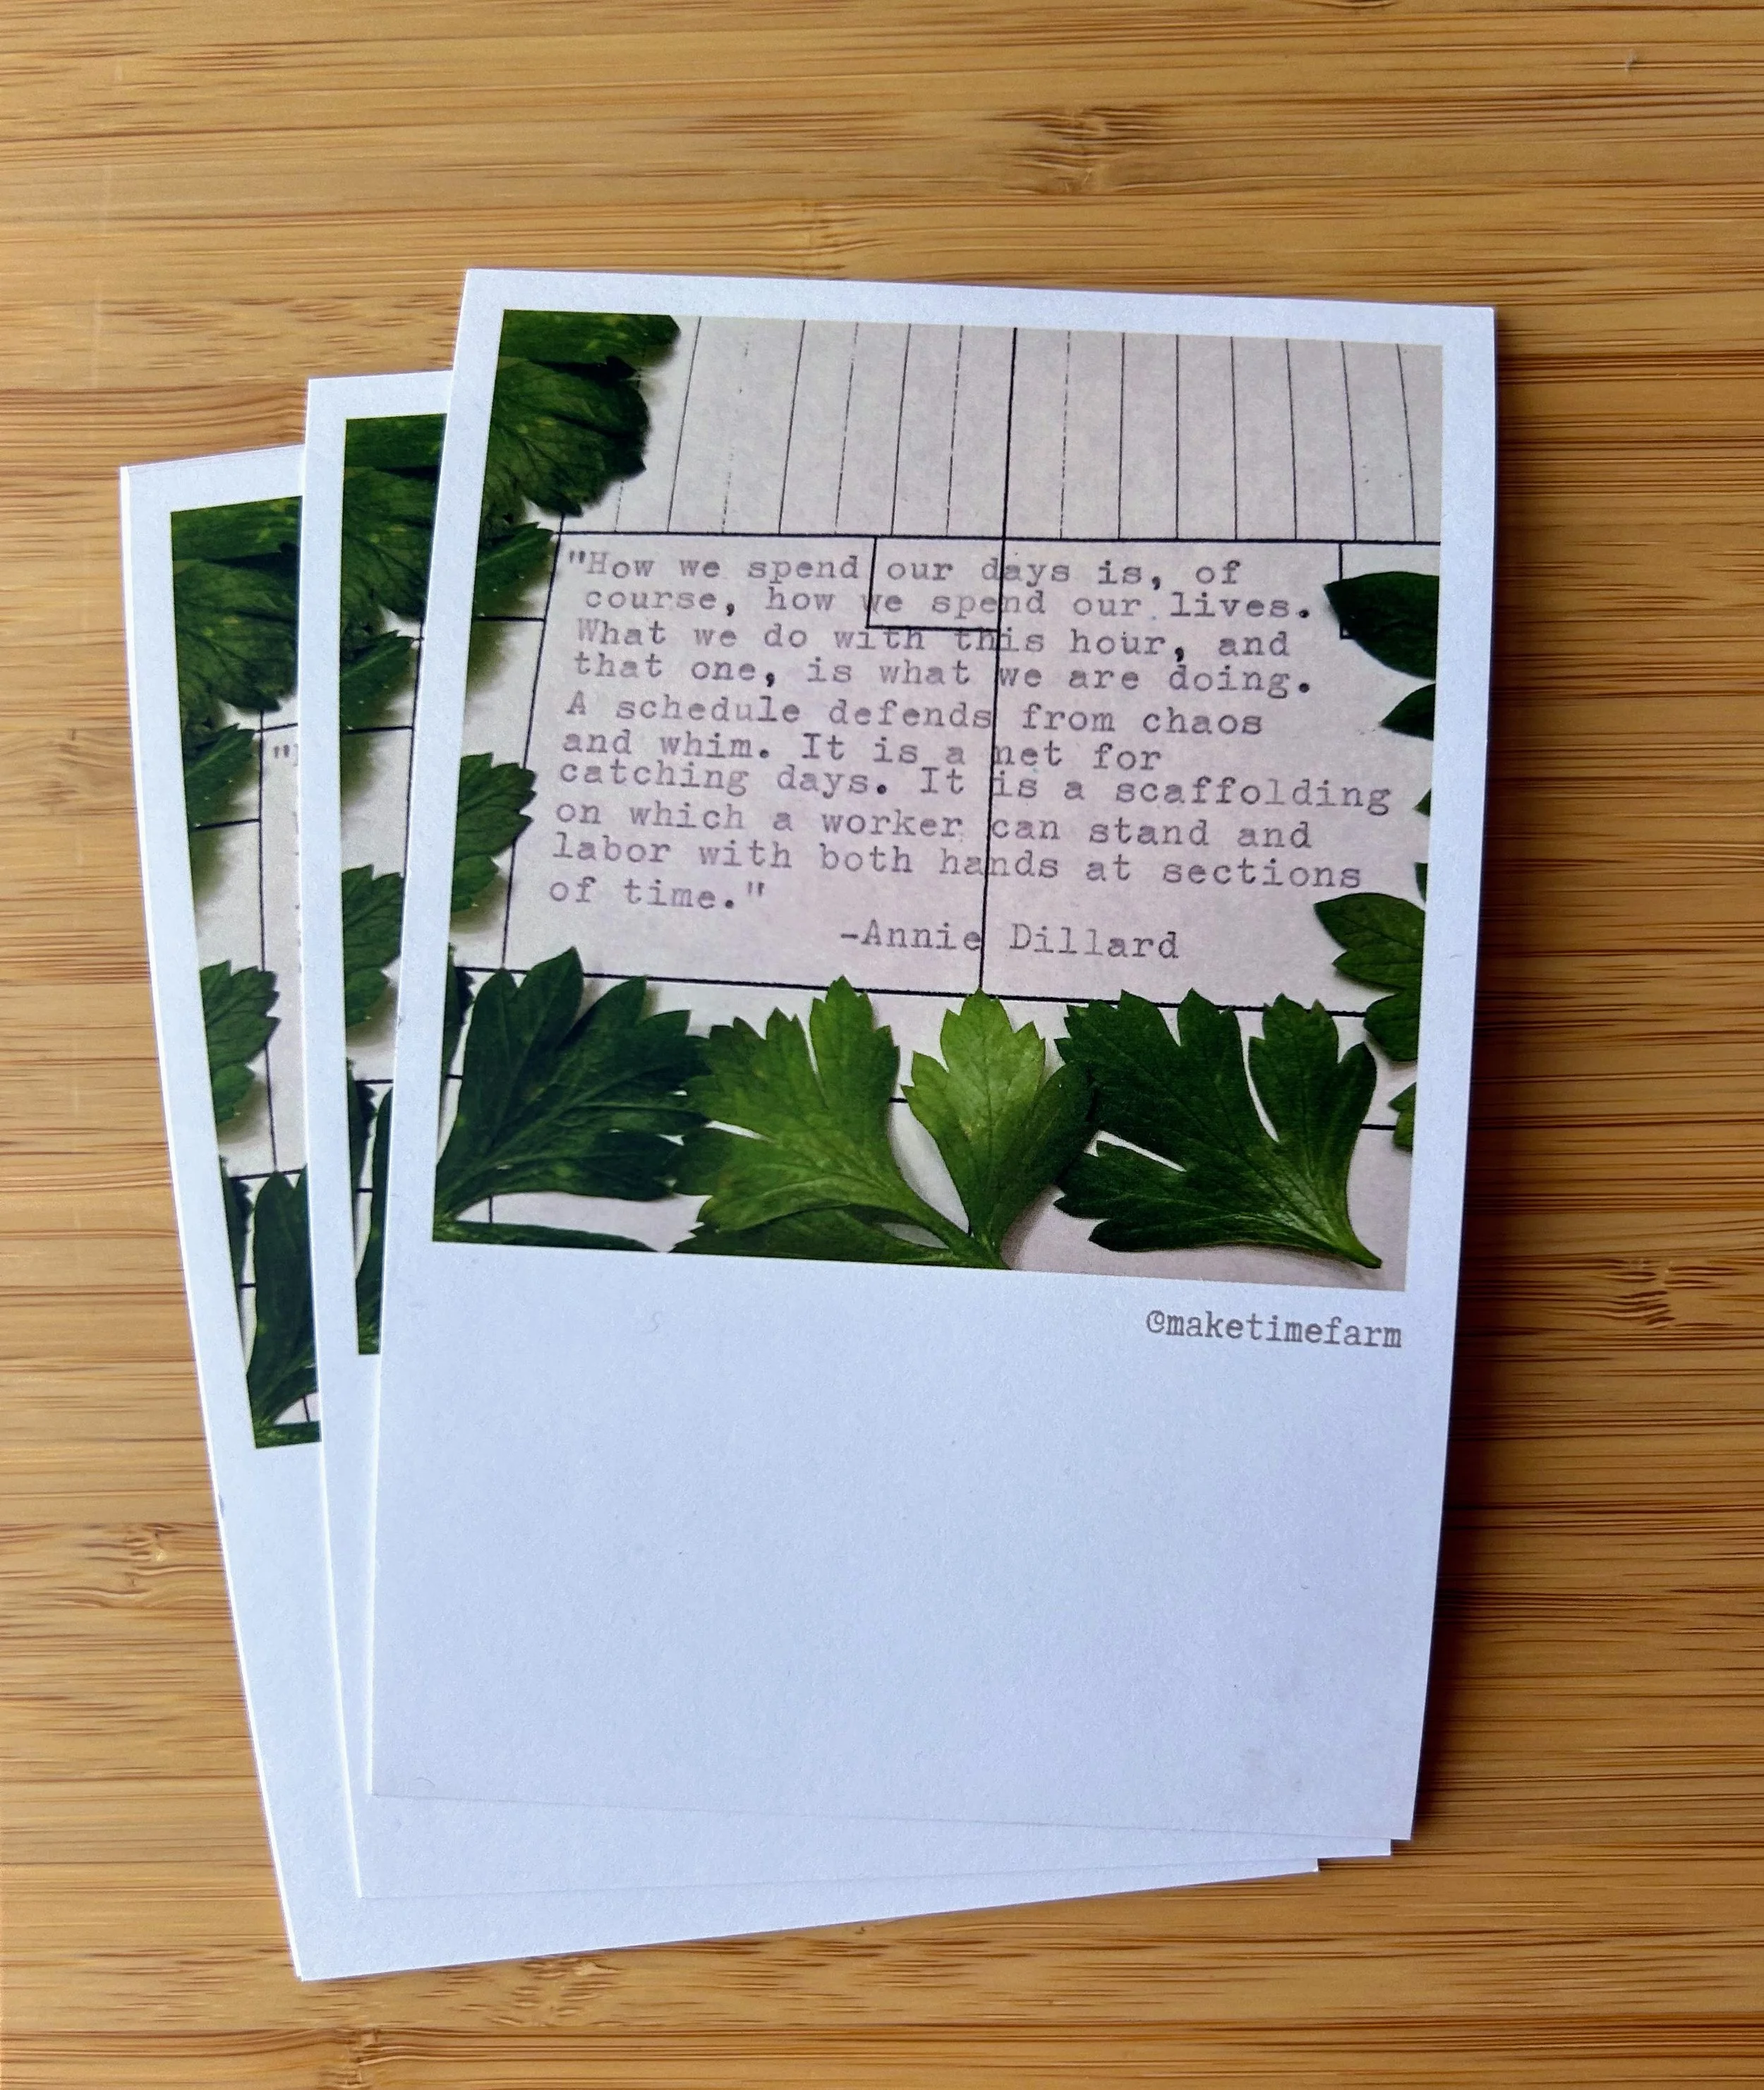 "How we spend our days is, of
course, how we spend our lives.
What we do with this hour, and
that one, is what we are doing.
A schedule defends from chaos
and whim. It is a net for
catching days. It is a scaffolding
on which a worker can stand and
labor with both hands at sections
of time."
-Annie Dillard
@maketimefarm